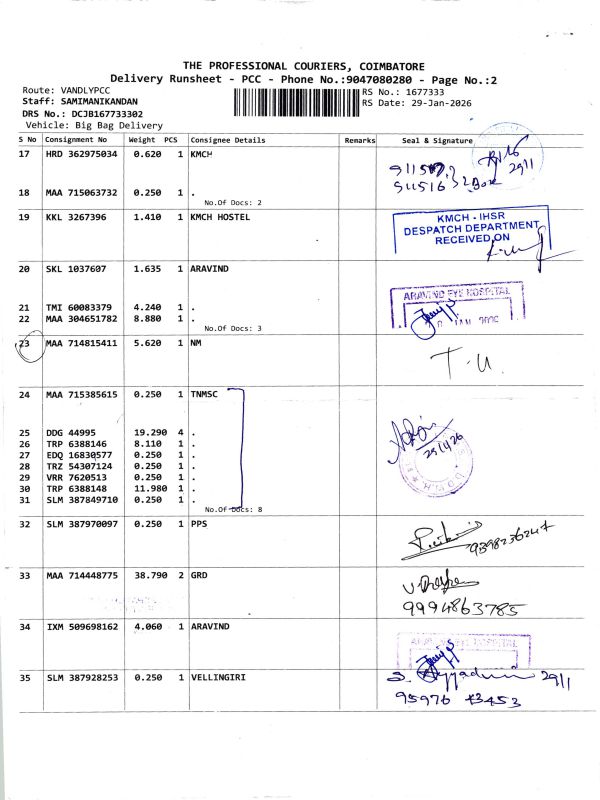 THE PROFESSIONAL COURIERS, COIMBATORE
Delivery Runsheet - PCC - Phone No.:9047080280 - Page No.:2
Route: VANDLYPCC
RS No.: 1677333
Staff: SAMIMANIKANDAN
RS Date: 29-Jan-2026
DRS No.: DCJB167733302
Vehicle: Big Bag Delivery
S No Consignment No Weight PCS Consignee Details Remarks Seal & Signature
17 HRD 362975034 0.620 1 KMCH
2911
18 MAA 715063732 0.250 1 .
No.Of Docs: 2
19 KKL 3267396 1.410 1 KMCH HOSTEL
KMCH - IHSR
DESPATCH DEPARTMENT
RECEIVED ON
20 SKL 1037607 1.635 1 ARAVIND
ARAVIND EYE HOSPITAL
21 TMI 60083379 4.240 1 .
22 MAA 304651782 8.880 1 .
No.Of Docs: 3
23 MAA 714815411 5.620 1 NM
T.U
24 MAA 715385615 0.250 1 TNMSC
25 DDG 44995 19.290 4 .
26 TRP 6388146 8.110 1 .
29/1/26
27 EDQ 16830577 0.250 1 .
28 TRZ 54307124 0.250 1 .
29 VRR 7620513 0.250 1 .
30 TRP 6388148 11.980 1 .
31 SLM 387849710 0.250 1 .
No.Of Docs: 8
32 SLM 387970097 0.250 1 PPS
33 MAA 714448775 38.790 2 GRD
9994863785
34 IXM 509698162 4.060 1 ARAVIND
ARAVIND EYE HOSPITAL
35 SLM 387928253 0.250 1 VELLINGIRI
2911
95976 43453